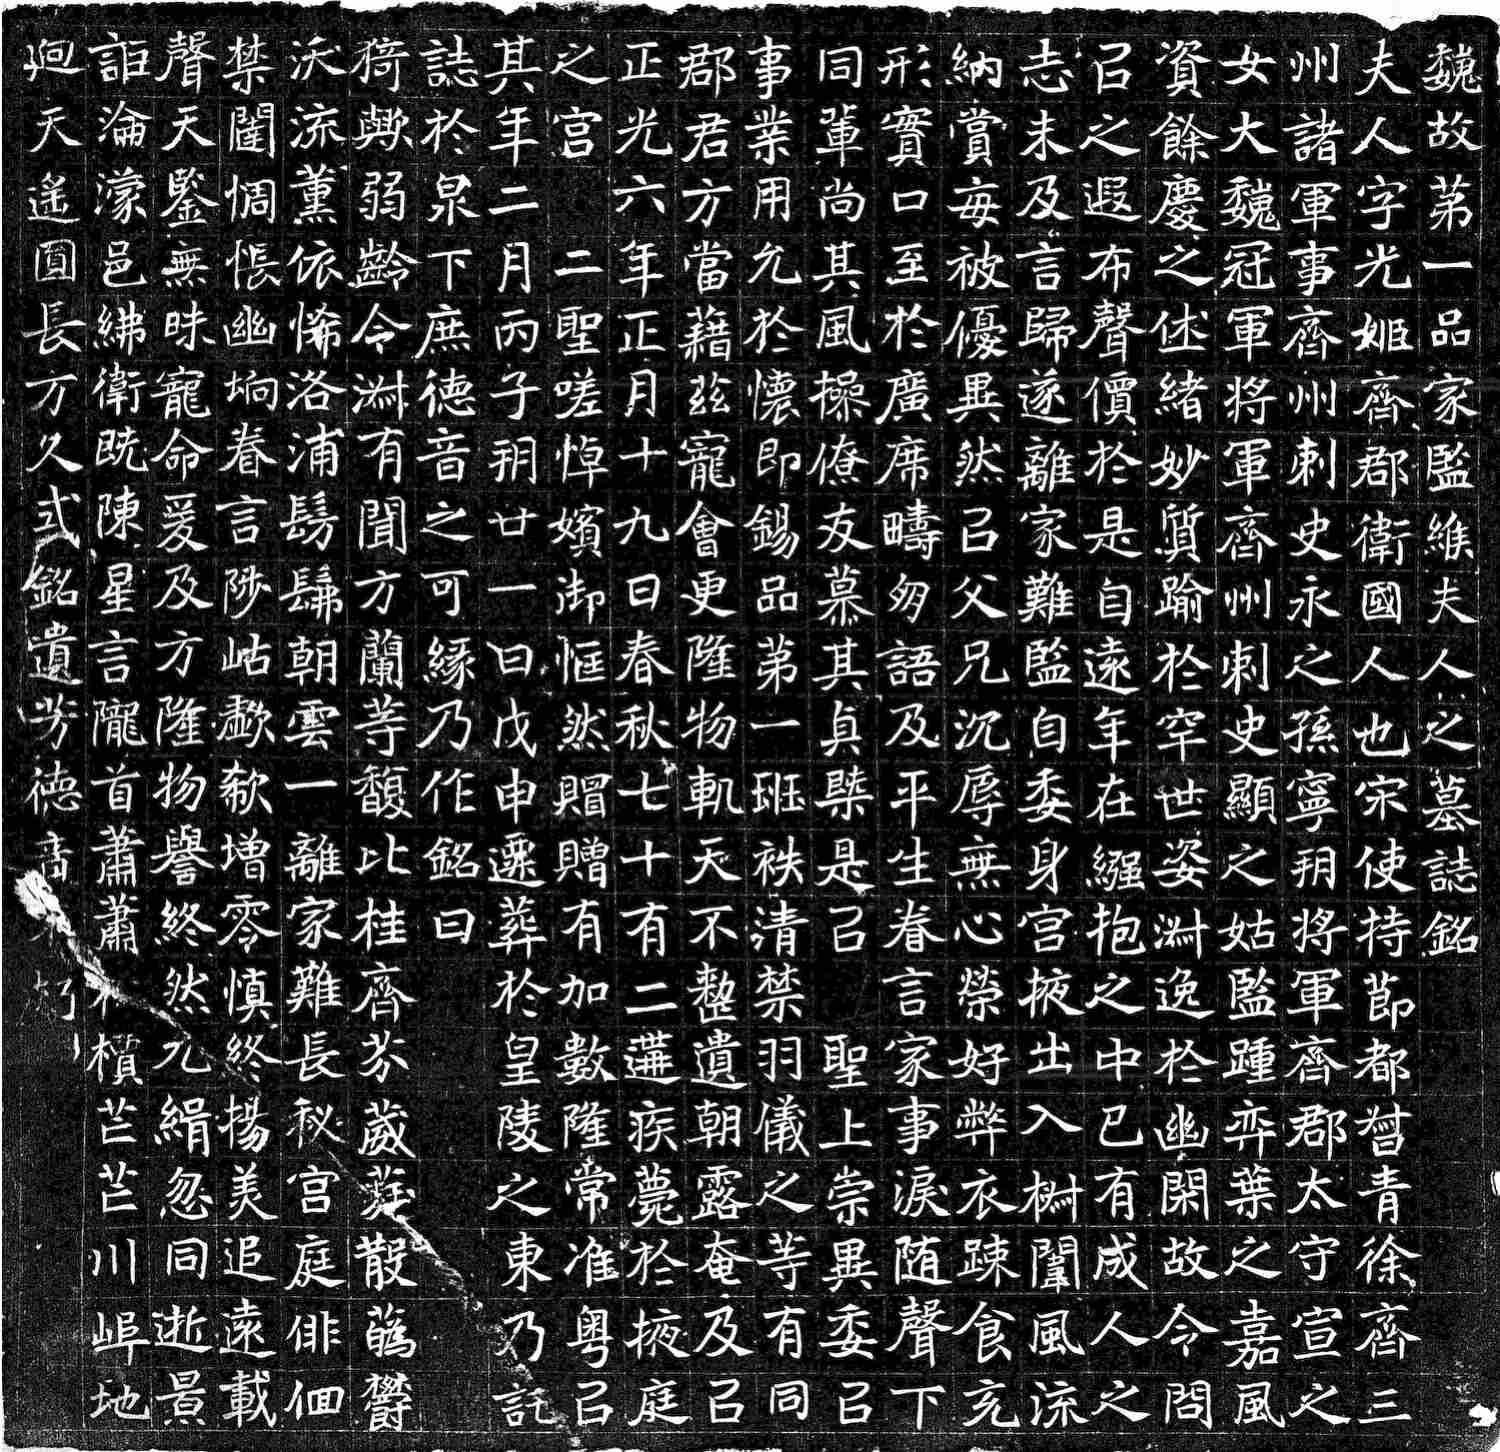 魏故第一品家監維夫人之墓誌銘
夫人字光姬齊郡衛國人也宋使持節都督青徐齊三
州諸軍事齊州刺史永之孫寧朔將軍齊郡太守宣之
女大魏冠軍將軍齊州刺史顯之姑監踵弈葉之嘉風
資餘慶之休緒妙質踰於罕世姿淵逸於幽閑故令問
㠯之遐布聲價於是自遠年在繈抱之中已有成人之
志未及言歸遂離家難監自委身宮掖出入椒闈風流
納賞每被優異然㠯父兄沉辱無心榮好弊衣疎食充
形實口至於廣席疇匆語及平生眷言家事淚随聲下
同輩尚其風操僚友慕其貞槩是㠯　聖上崇異委㠯
事業用允於懷即錫品第一班袟清禁羽儀之等有同
郡君方當藉茲寵會更隆物軌天不憗遺朝露奄及㠯
正光六年正月十九日春秋七十有二遘疾薨於掖庭
之宮　二聖嗟悼嬪御恇然賵贈有加數隆常准粤㠯
其年二月丙子朔廿一日戊申遷葬於皇陵之東乃託
誌於泉下庶德音之可緣乃作銘曰
猗歟弱齡令淵有聞方蘭等馥比桂齊芬葳蕤散蘤欝
沃流薰依悕洛浦髣髴朝雲一離家難長秘宮庭俳佪
禁闥惆悵幽坰眷言陟岵歔欷增零慎終揚美追遠載
聲天鑒無昧寵命爰及方隆物譽終然允緝忽同逝景
詎淪濛邑紼衛既陳星言隴首蕭蕭松檟芒芒川阜地
迥天遙圓長方久式銘遺芳德音不朽